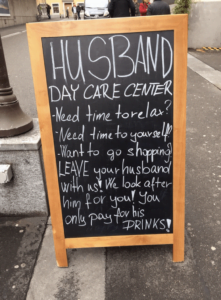 HUSBAND
DAY CARE CENTER
-Need time to relax?
-Need time to yourself?
-Want to go shopping?
LEAVE your husband
with us! We look after
him for you! You
only pay for his
DRINKS!